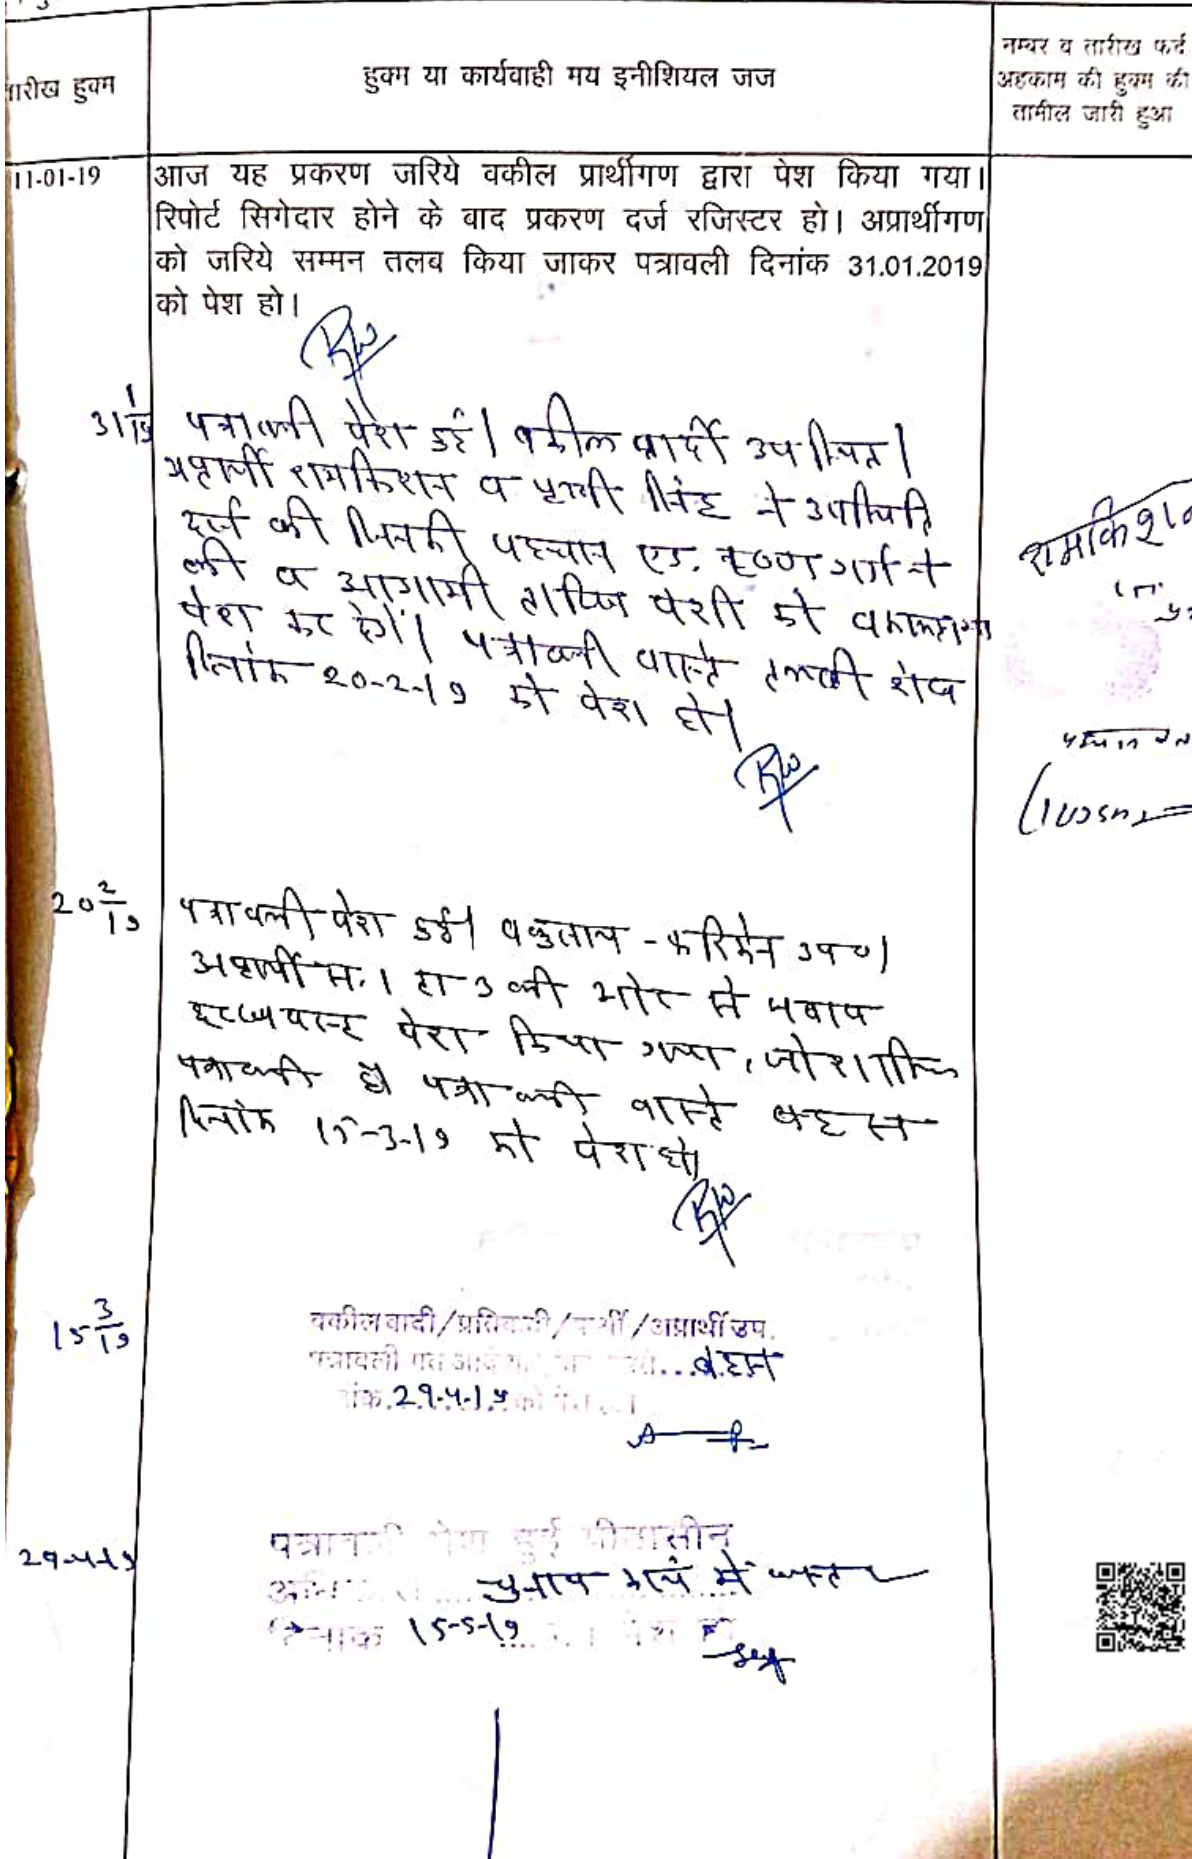 तारीख हुक्म
हुक्म या कार्यवाही मय इनीशियल जज
नम्बर व तारीख फर्द
अहकाम की हुक्म की
तामील जारी हुआ
11-01-19
आज यह प्रकरण जरिये वकील प्रार्थीगण द्वारा पेश किया गया।
रिपोर्ट सिगेदार होने के बाद प्रकरण दर्ज रजिस्टर हो। अप्रार्थीगण
को जरिये सम्मन तलब किया जाकर पत्रावली दिनांक 31.01.2019
को पेश हो।
31/1/19
पत्रावली पेश हुई। वकील प्रार्थी उपस्थित।
अप्रार्थी रामकिशन व पृथ्वी सिंह ने उपस्थिति
दर्ज की जिनकी पहचान एड. कृष्ण गर्ग ने
की व आगामी तारीख पेशी को वकालतनामा
पेश कर देंगे। पत्रावली वास्ते तलबी शेष
दिनांक 20-2-19 को पेश हो।
रामकिशन
20/2/19
पत्रावली पेश हुई। वकुलाय फरिकेन उप०।
अप्रार्थी सं. 1 ता 3 की ओर से जवाब
पेश किया गया, जो शामिल
पत्रावली हो पत्रावली वास्ते बहस
दिनांक 15-3-19 को पेश हो।
15/3/19
वकील वादी/प्रतिवादी/प्रार्थी/अप्रार्थी उप.
पत्रावली ... बहस
29-4-19
29-4-19
पत्रावली पेश हुई पीठासीन
चुनाव कार्य में व्यस्त
दिनांक 15-5-19 पेश हो